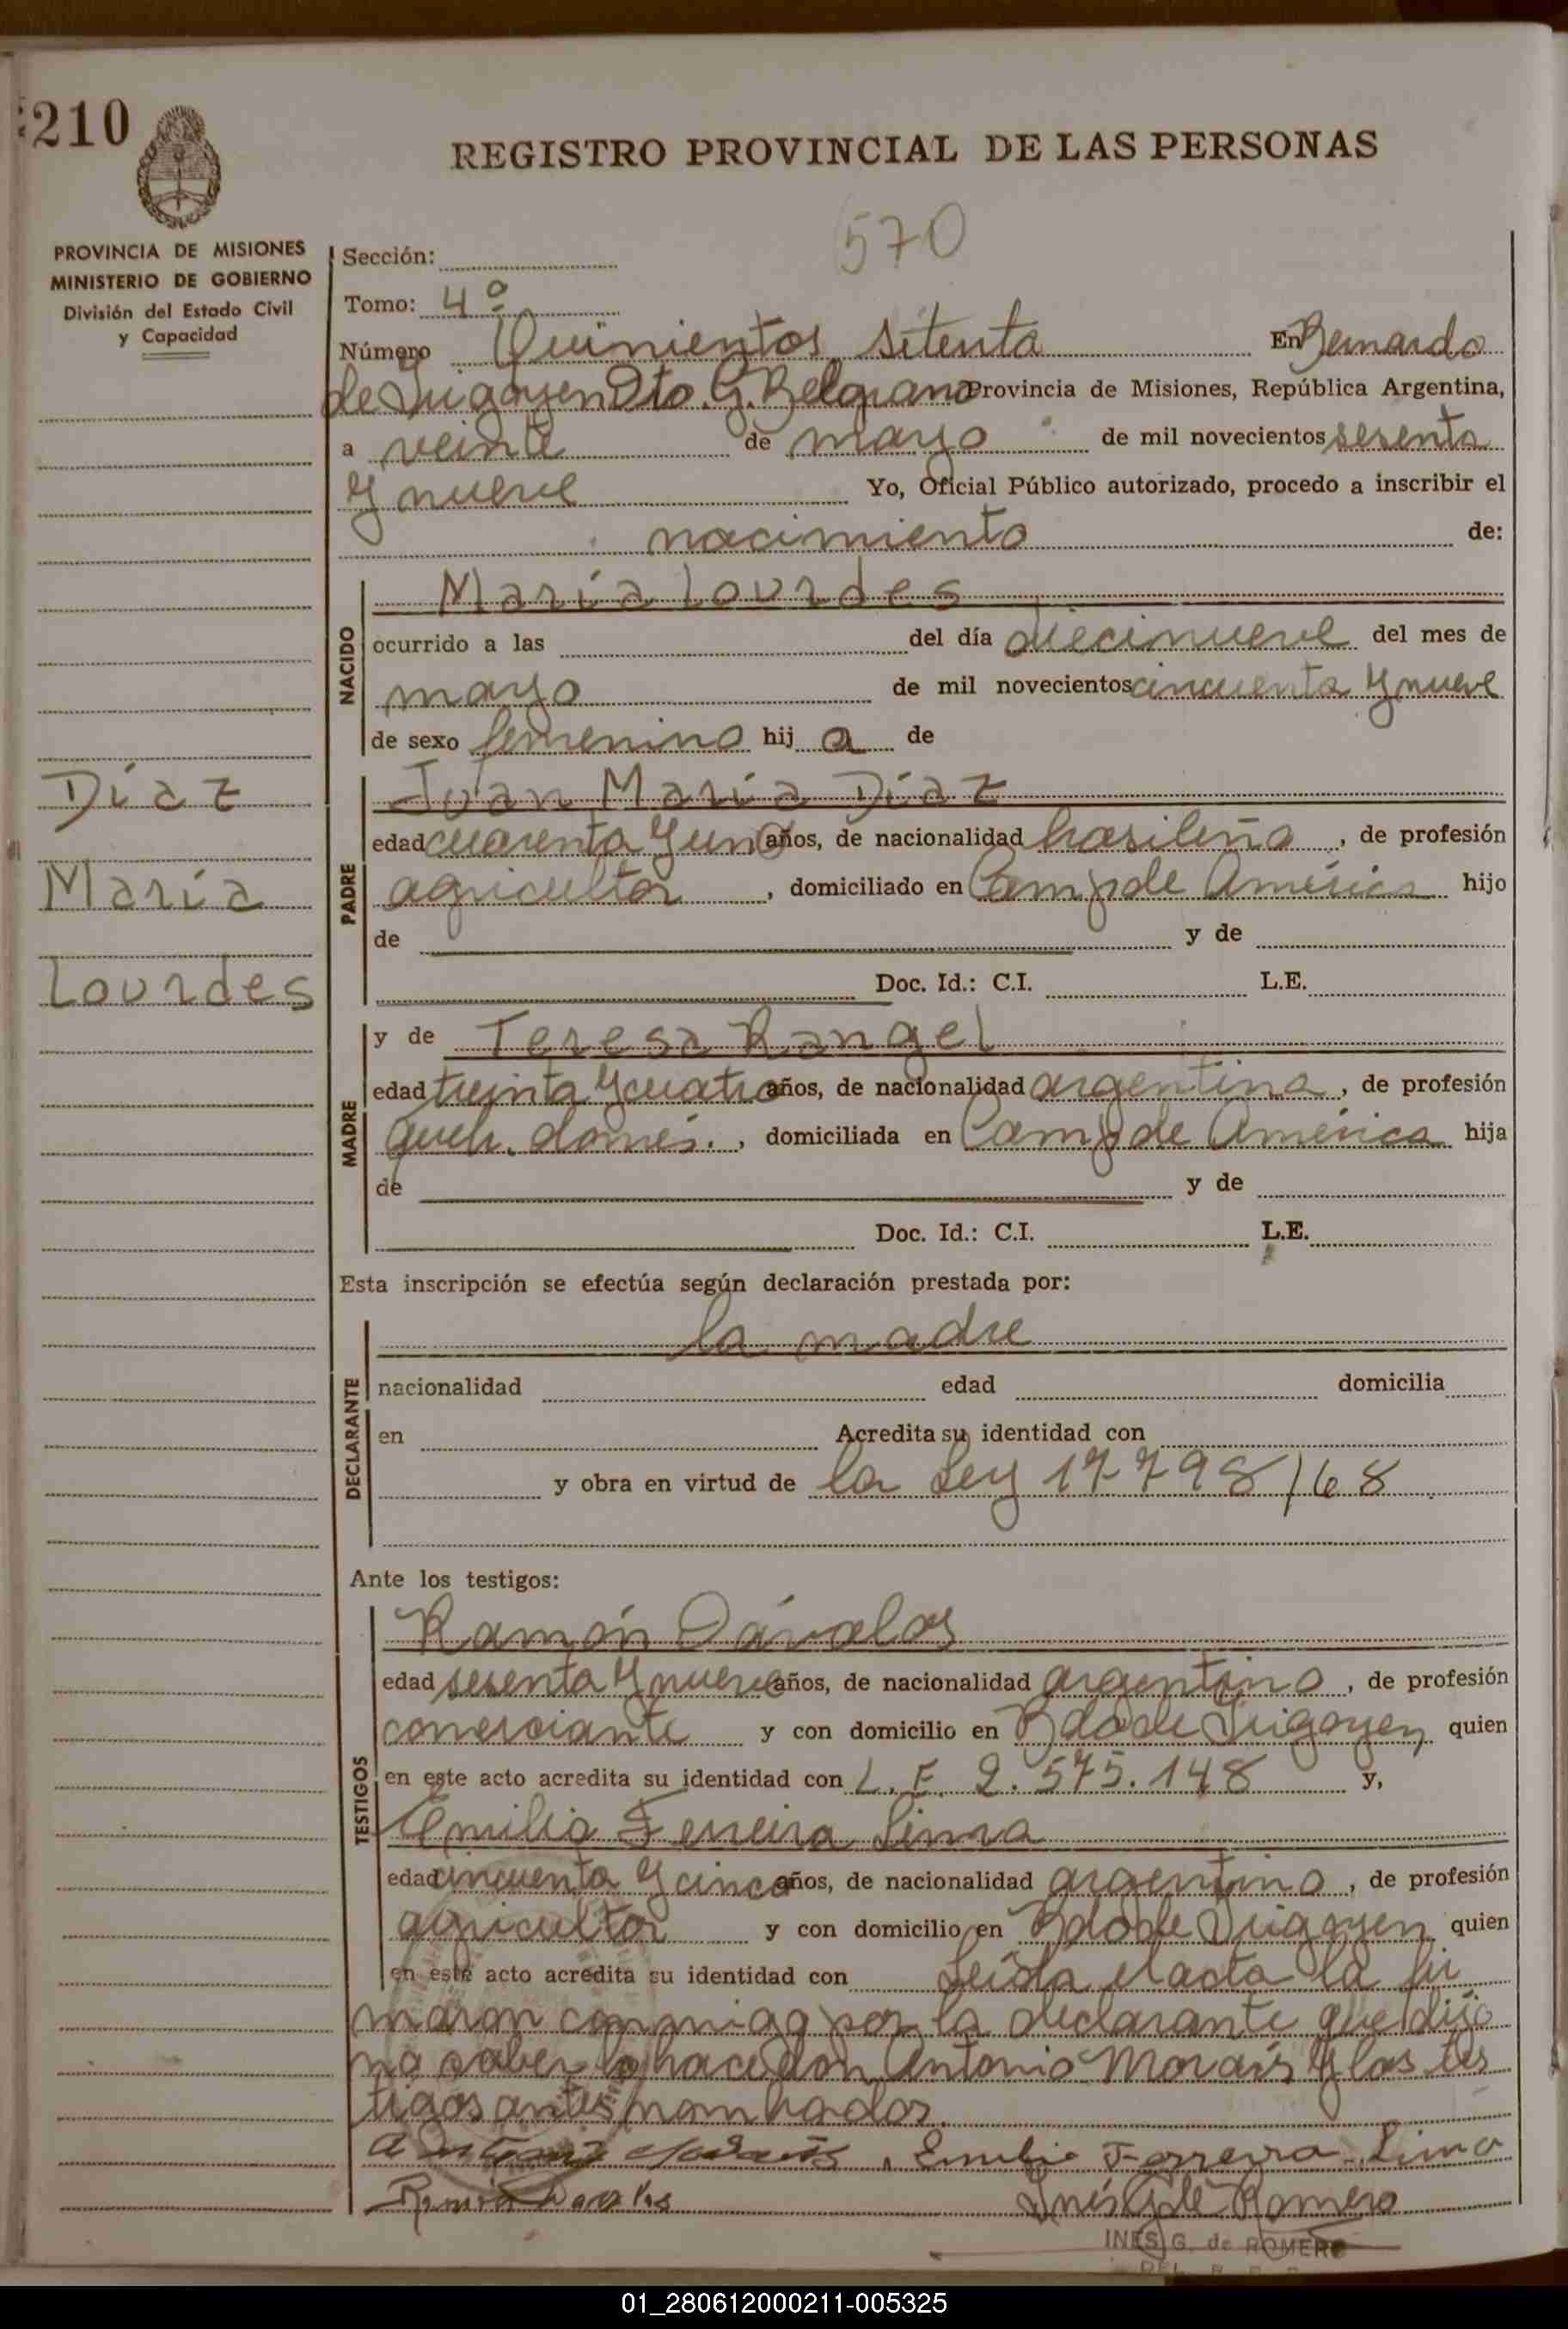 210
REGISTRO PROVINCIAL DE LAS PERSONAS
570
PROVINCIA DE MISIONES
MINISTERIO DE GOBIERNO
División del Estado Civil
y Capacidad
Sección:
Tomo: 4º
Número Quinientos setenta En Bernardo
de Irigoyen Dto. G. Belgrano Provincia de Misiones, República Argentina,
a veinte de mayo de mil novecientos sesenta
y nueve Yo, Oficial Público autorizado, procedo a inscribir el
nacimiento de:
NACIDO
María Lourdes
ocurrido a las del día diecinueve del mes de
mayo de mil novecientos cincuenta y nueve
de sexo femenino hij a de
Díaz
María
Lourdes
PADRE
Juan María Díaz
edad cuarenta y uno años, de nacionalidad brasileña, de profesión
agricultor, domiciliado en Camp de América hijo
de y de
Doc. Id.: C.I. L.E.
MADRE
y de Teresa Rangel
edad treinta y cuatro años, de nacionalidad argentina, de profesión
queh. domés., domiciliada en Camp de América hija
de y de
Doc. Id.: C.I. L.E.
Esta inscripción se efectúa según declaración prestada por:
DECLARANTE
la madre
nacionalidad edad domicilia
en Acredita su identidad con
y obra en virtud de la Ley 17798/68
Ante los testigos:
TESTIGOS
Ramón Dávalos
edad sesenta y nueve años, de nacionalidad argentino, de profesión
comerciante y con domicilio en Bdo de Irigoyen quien
en este acto acredita su identidad con L.E. 2.575.148 y,
Emilio Ferreira Lima
edad cincuenta y cinco años, de nacionalidad argentino, de profesión
agricultor y con domicilio en Bdo de Irigoyen quien
en este acto acredita su identidad con Leída el acta la fir
maron conmigo por la declarante que dijo
no saber lo hace don Antonio Morais y los tes
tigos antes nombrados.
Antonio Morais, Emilio Ferreira Lima
Ramón Davalos Inés G de Romero
INES G. de ROMERO
01_280612000211-005325